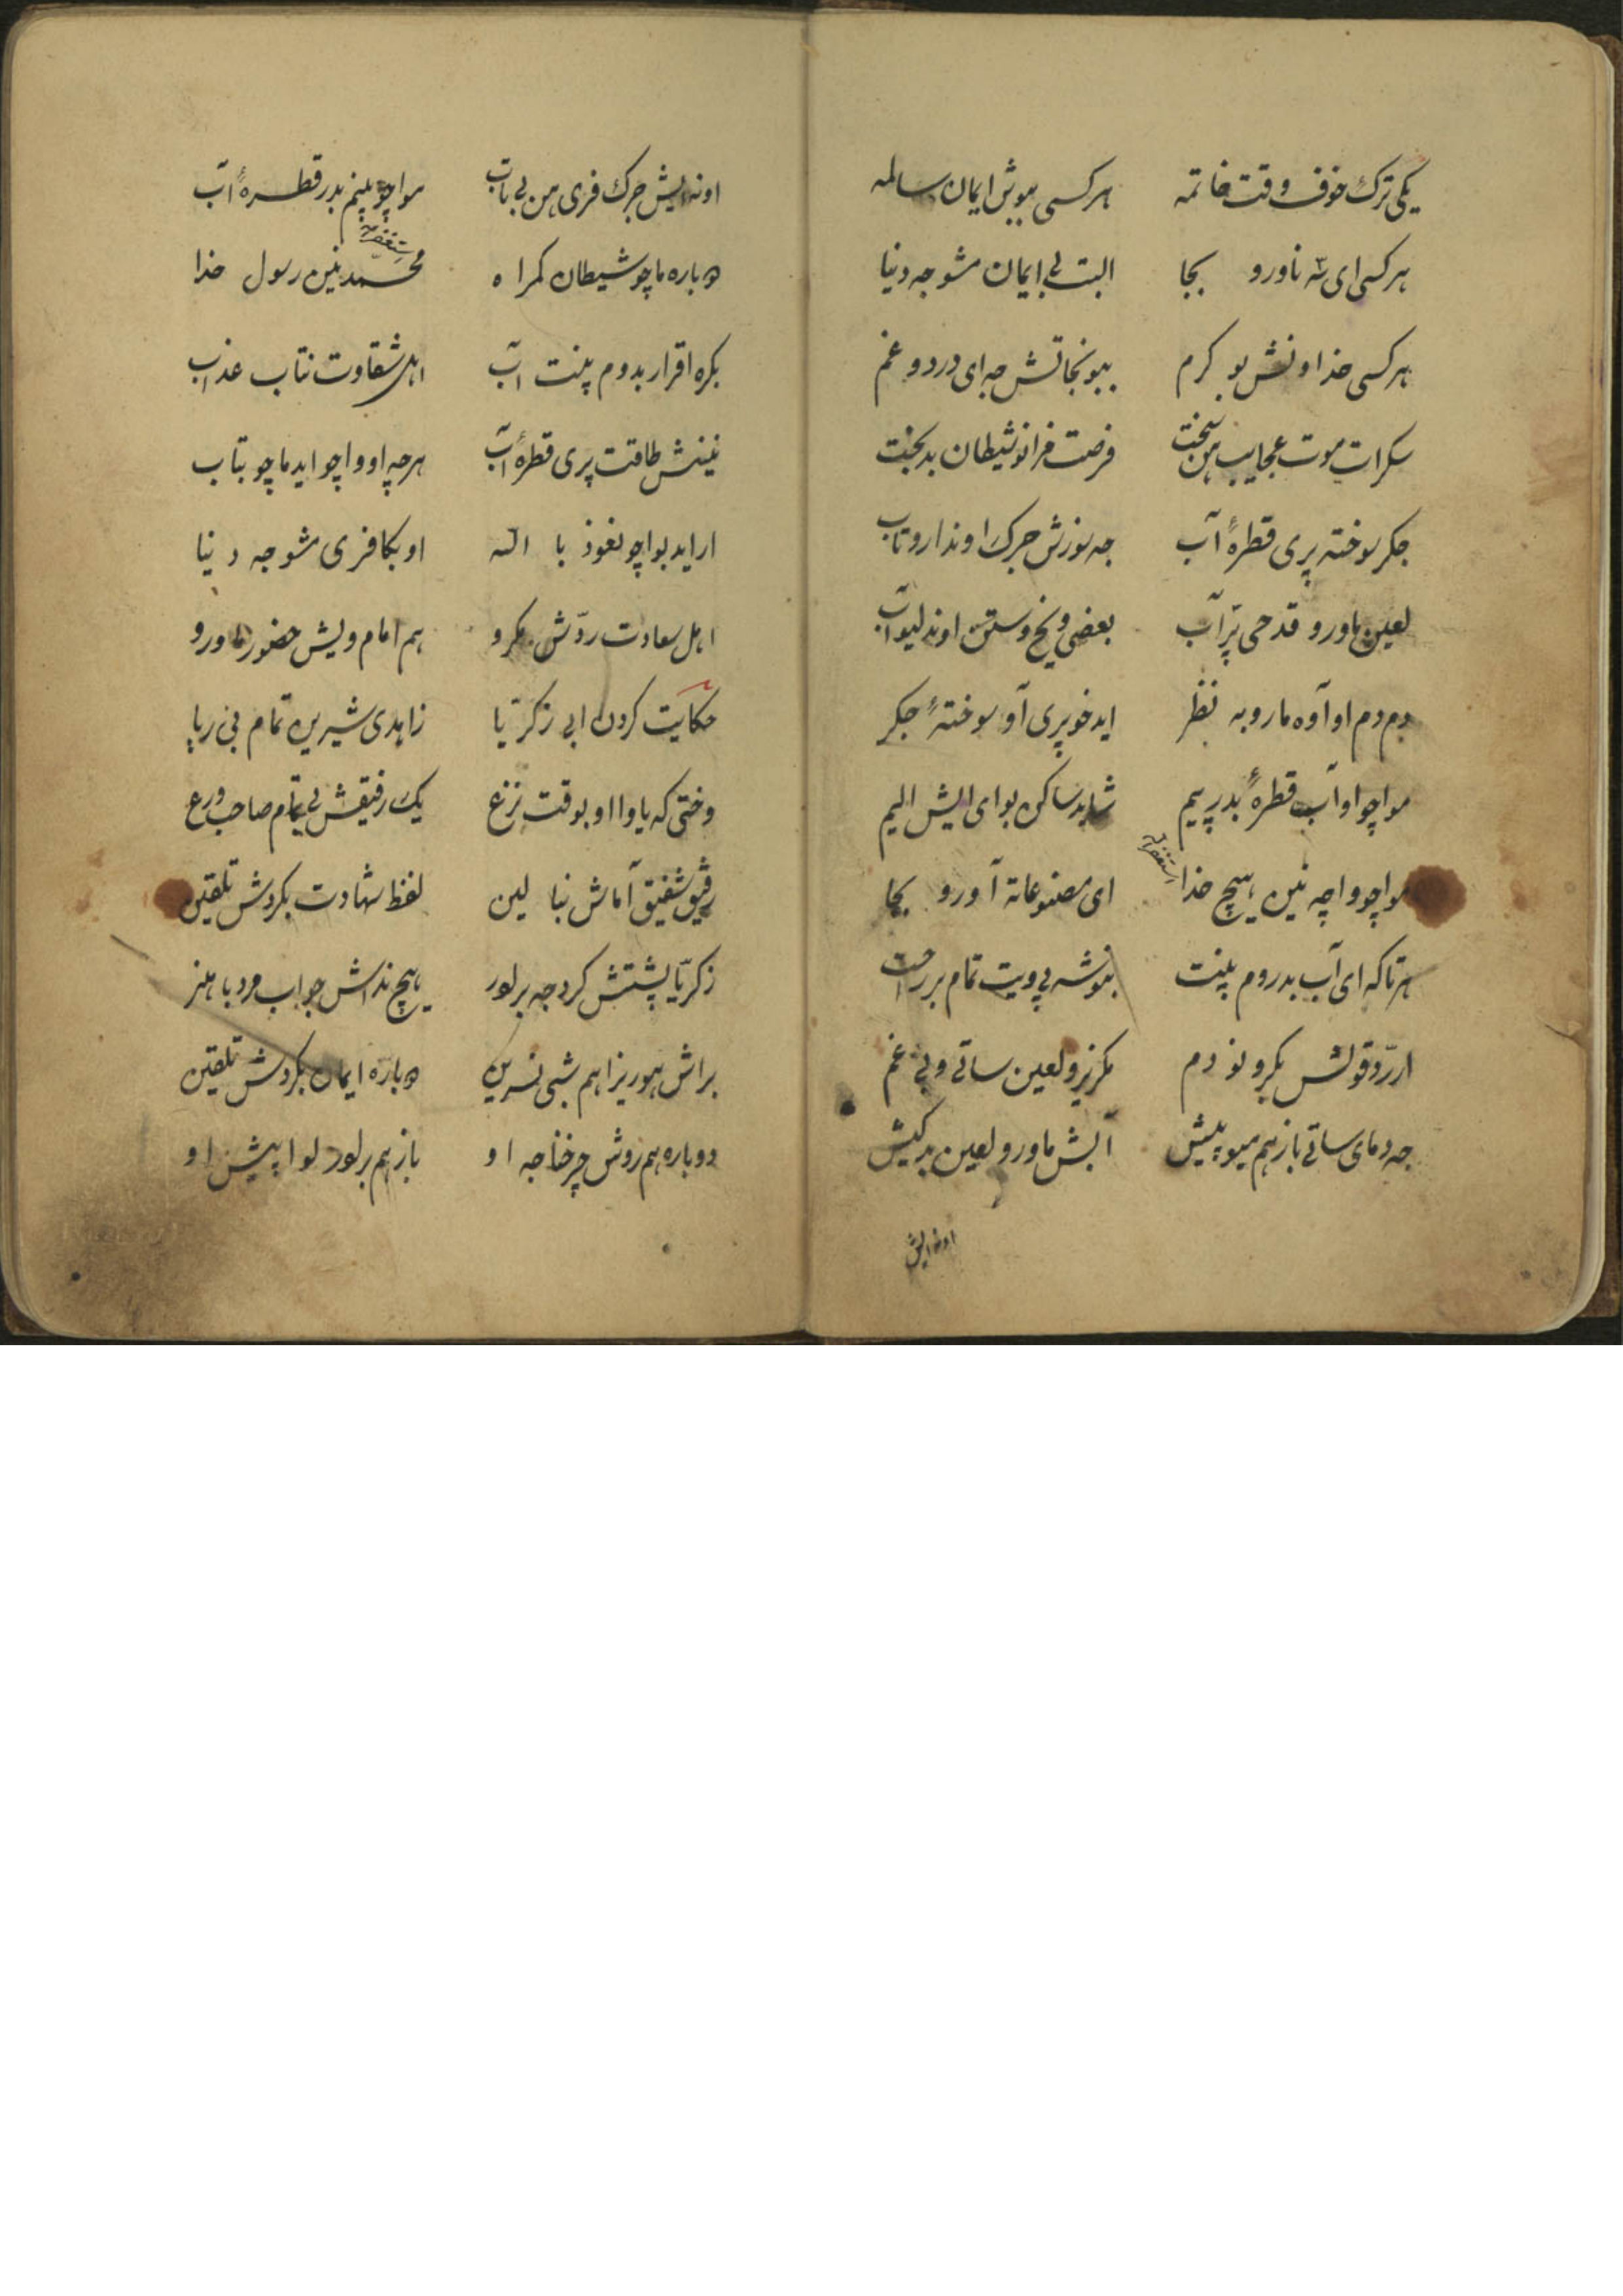 یکی ترک خوف وقت خاتمه هرکسی ببوش ایمان سالمه
هرکسی ای سه ناورو بجا البت بی ایمان مشو جه دنیا
هرکسی خداونش بو کرم ببو نجاتش جه ای درد و غم
سکرات موت عجایب من سخت فرصت فرانو شیطان بدبخت
جکر سوخته پری قطرهٔ آب جه سوزش جرک اوندارو تاب
لعین ماورو قدحی پر آب بعضی ونخ وستن اوند لیو آب
دم دم او آوه مارو به نظر اید خو پری آو سوختهٔ جکر
مواچو او آب قطرهٔ بدر پیم شاید ساکن بو ای ایش الیم
مواچو واچه نین هیچ خدا ای مصنوعاته آورو بجا
استغفرالله
هرتاکه ای آب بدروم پینت بنوشه پی ویت تمام بر راحت
ار رد قولش بکرو نو دم مکریزو لعین ساتی و بی غم
جه دمای ساتی باز هم میو پیش آبش ماورو لعین بدکیش
اونه ایش
اونه ایش جرک فری من بی تاب مواچو پینم بدر قطرهٔ آب
دوباره ماچو شیطان کمراه محمد نین رسول خدا
استغفرالله
بکره اقرار بدوم پینت آب اهل شقاوت نتاب عذاب
نینش طاقت پری قطرهٔ آب هرچه او واچو اید ماچو بتاب
ار اید بواچو نعوذ با الله او بکافری مشو جه دنیا
اهل سعادت ردش مکرو هم امام ویش حضور ماورو
حکایت کردن ابی زکریا زاهدی شیرین تمام بی ریا
وختی که یاوا او بوقت نزع یک رفیقش بی تمام صاحب ورع
رفیق شفیق آماش نبا لین لفظ شهادت بکردش تلقین
زکریا پشتش کرد جه بر لور هیچ نداش جواب مرد با هنر
براش مور یزا هم شی نسرین دوباره ایمان بکردش تلقین
دوباره هم روش چرخنا جه او باز هم بر لور لوا پیش او